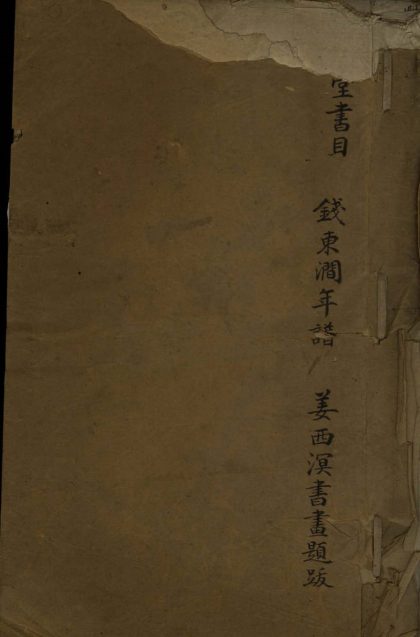 堂書目　錢東澗年譜　姜西溟書畫題跋